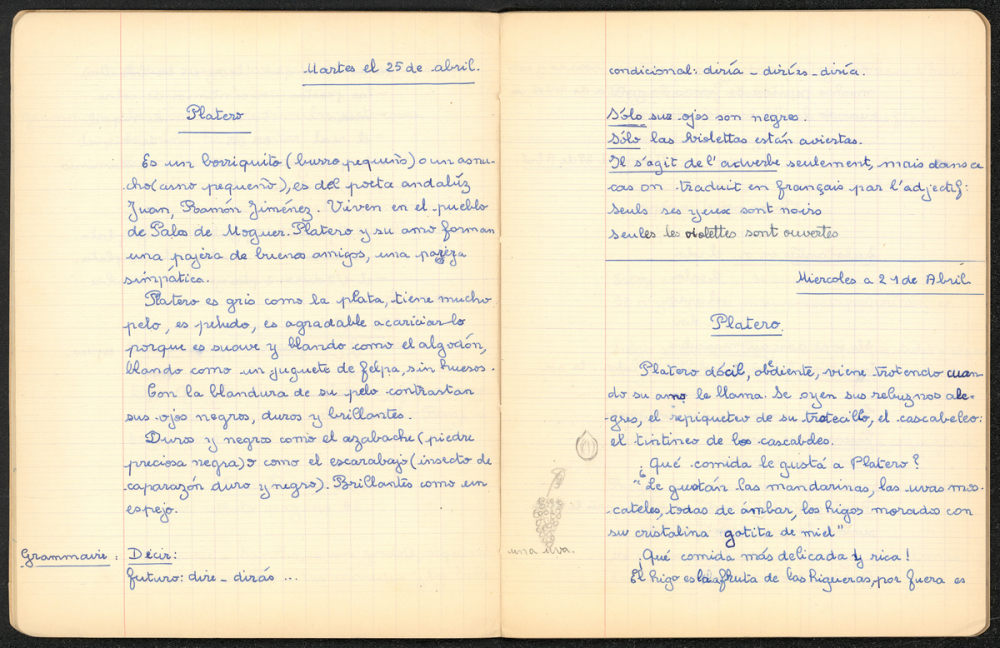 Martes el 25 de abril.
Platero
Es un borriquito (burro pequeño) o un asnu-
cho (asno pequeño), es del poeta andalúz
Juan, Ramón Jiménez. Viven en el pueblo
de Palos de Moguer. Platero y su amo forman
una pajera de buenos amigos, una pareja
simpática.
Platero es gris como la plata, tiene mucho
pelo, es peludo, es agradable acariciarlo
porque es suave y blando como el algodón,
blando como un juguete de felpa, sin huesos.
Con la blandura de su pelo contrastan
sus ojos negros, duros y brillantes.
Duros y negros como el azabache (piedre
preciosa negra) o como el escarabajo (insecto de
caparazón duro y negro). Brillantes como un
espejo.
Grammaire : Décir:
futuro: dire _ dirás ...
condicional: diría _ dirías _ diría.
Sólo sus ojos son negros.
Sólo las violettas están aviertas.
Il s'agit de l'adverbe seulement, mais dans ce
cas on traduit en français par l'adjectif:
Seuls ses yeux sont noirs
seules les violettes sont ouvertes
Miercoles a 21 de Abril
Platero.
Platero dócil, obediente, viene trotendo cuan-
do su amo le llama. Se oyen sus rebuznos ale-
gres, el repiqueteo de su trotecillo, el cascabeleo:
el tintineo de los cascabeles.
¿Qué comida le gustá a Platero?
"Le gustán las mandarinas, las uvas mos-
cateles, todas de ámbar, los higos morado con
su cristalina gotita de miel"
¡Qué comida más delicada y rica!
una uva.
El higo es la fruta de las higueras, por fuera es